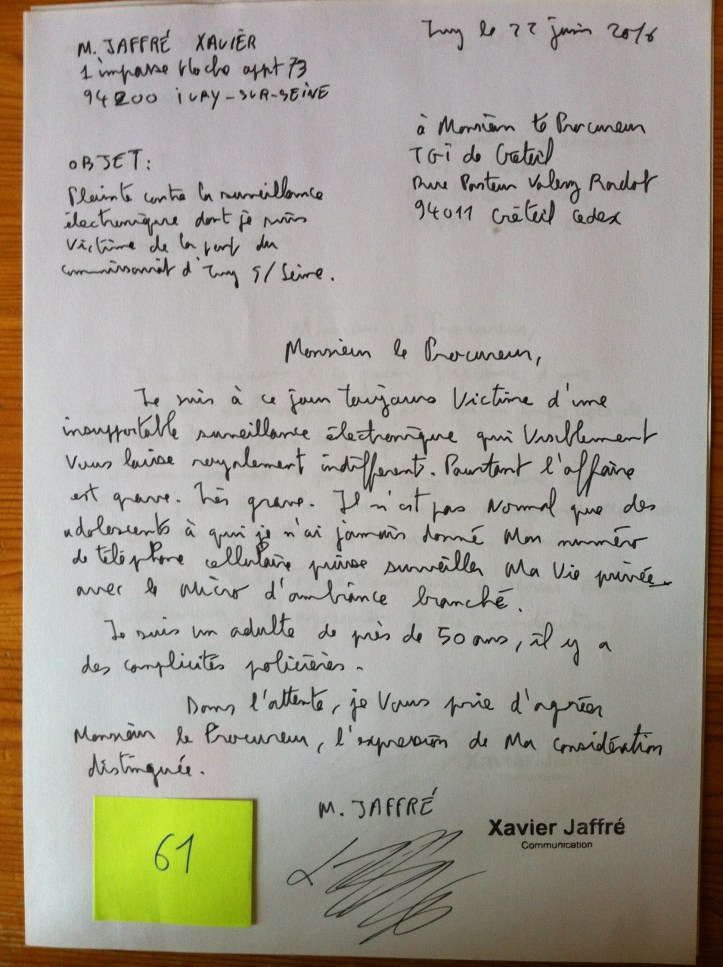 M. JAFFRÉ XAVIER
1 impasse Hoche appt 73
94200 IVRY-SUR-SEINE
Ivry le 22 juin 2016
à Monsieur le Procureur
TGI de Créteil
Rue Pasteur Valery Radot
94011 Créteil cedex
OBJET:
Plainte contre la surveillance
électronique dont je suis
Victime de la part du
commissariat d'Ivry S/Seine.
Monsieur le Procureur,
Je suis à ce jour toujours Victime d'une
insupportable surveillance électronique qui Visiblement
Vous laisse royalement indifférent. Pourtant l'affaire
est grave. Très grave. Il n'est pas Normal que des
adolescents à qui je n'ai jamais donné Mon numéro
de téléphone cellulaire puisse surveiller Ma Vie privée
avec le Micro d'ambiance branché.
Je suis un adulte de près de 50 ans, il y a
des complicités policières.
Dans l'attente, je Vous prie d'agréer
Monsieur le Procureur, l'expression de Ma considération
distinguée.
M. JAFFRÉ
Xavier Jaffré
Communication
61